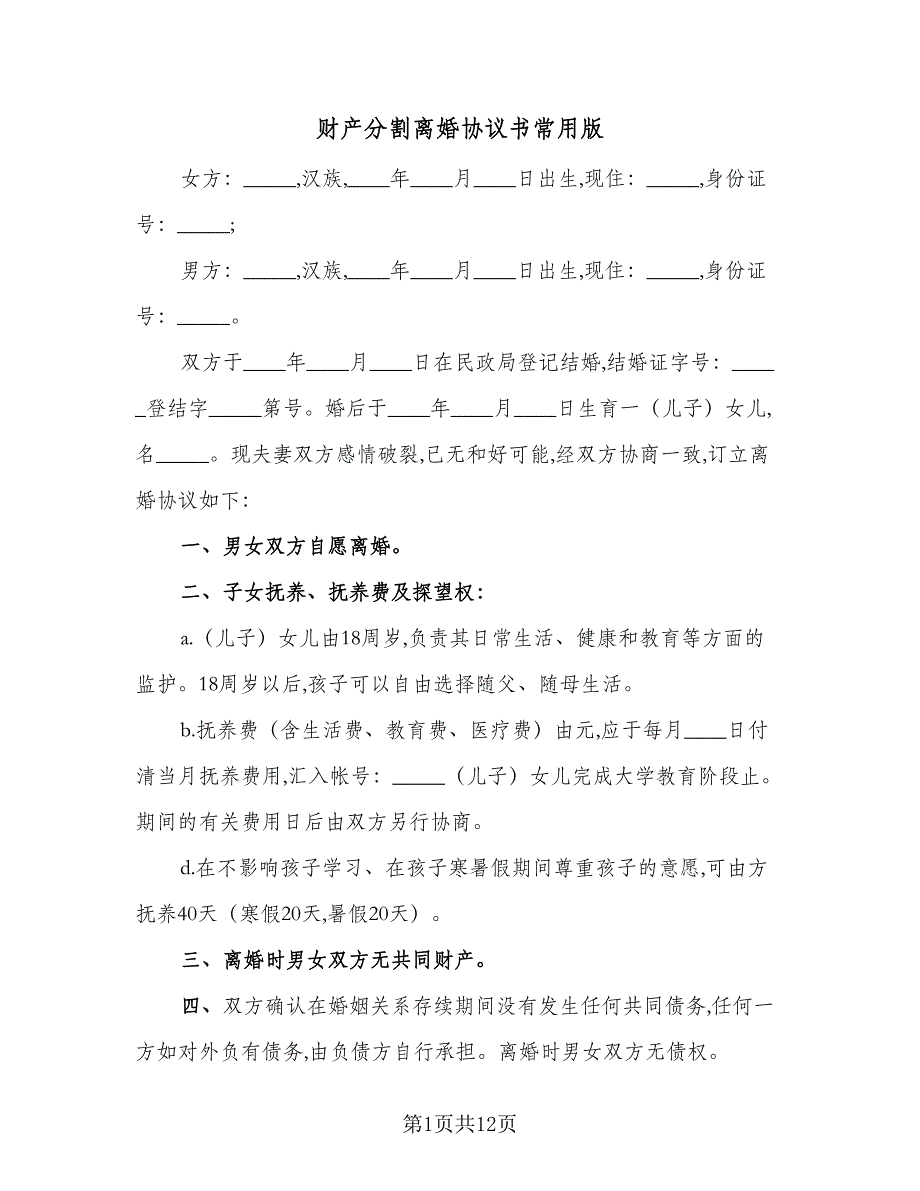 财产分割离婚协议书常用版
女方：_____,汉族,____年____月____日出生,现住：_____,身份证
号：_____;
男方：_____,汉族,____年____月____日出生,现住：_____,身份证
号：_____。
双方于____年____月____日在民政局登记结婚,结婚证字号：____
_登结字_____第号。婚后于____年____月____日生育一（儿子）女儿,
名_____。现夫妻双方感情破裂,已无和好可能,经双方协商一致,订立离
婚协议如下：
一、男女双方自愿离婚。
二、子女抚养、抚养费及探望权：
a.（儿子）女儿由18周岁,负责其日常生活、健康和教育等方面的
监护。18周岁以后,孩子可以自由选择随父、随母生活。
b.抚养费（含生活费、教育费、医疗费）由元,应于每月____日付
清当月抚养费用,汇入帐号：_____（儿子）女儿完成大学教育阶段止。
期间的有关费用日后由双方另行协商。
d.在不影响孩子学习、在孩子寒暑假期间尊重孩子的意愿,可由方
抚养40天（寒假20天,暑假20天）。
三、离婚时男女双方无共同财产。
四、双方确认在婚姻关系存续期间没有发生任何共同债务,任何一
方如对外负有债务,由负债方自行承担。离婚时男女双方无债权。
第1页共12页